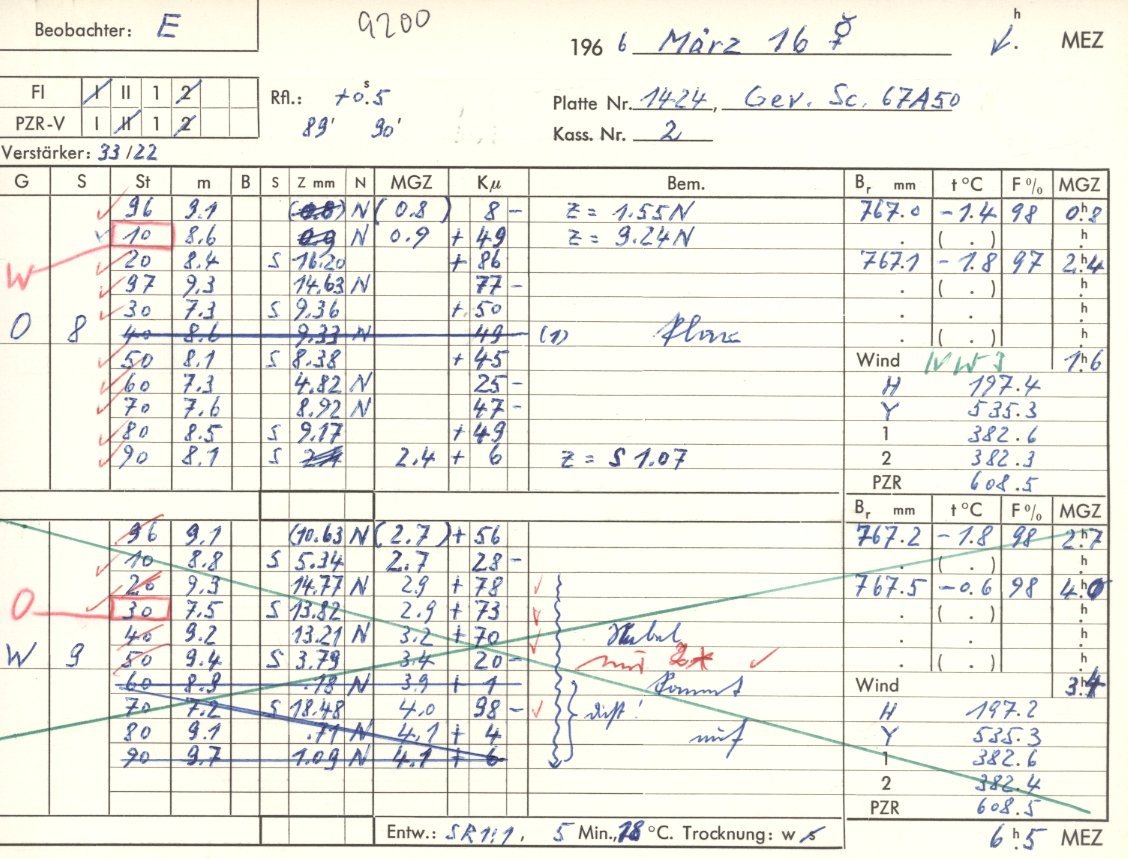 Beobachter: E
9200
196 6 März 16 ☿ h . MEZ
FI I II 1 2
PZR-V I II 1 2
Rfl.: +0.s5
89' 90'
Platte Nr. 1424, Gev. Sc. 67A50
Kass. Nr. 2
Verstärker: 33/22
G S St m B S Z mm N MGZ Kμ Bem. Br mm t °C F % MGZ
96 9.1 (0.8) N (0.8) 8 - Z = 1.55 N 767.0 -1.4 98 0h8
10 8.6 0.9 N 0.9 + 49 Z = 9.24 N . ( . ) h
W 20 8.4 S 16.20 + 86 767.1 -1.8 97 2h4
97 9.3 14.63 N 77 - . ( . ) h
O 8 30 7.3 S 9.36 + 50 . . h
40 8.6 9.33 N 49 (1) . ( . ) h
50 8.1 S 8.38 + 45 Wind NW 3 1h6
60 7.3 4.82 N 25 - H 197.4
70 7.6 8.92 N 47 - Y 535.3
80 8.5 S 9.17 + 49 1 382.6
90 8.1 S 2.4 + 6 Z = S 1.07 2 382.3
PZR 608.5
Br mm t °C F % MGZ
96 9.1 (10.63 N (2.7) + 56 767.2 -1.8 98 2h7
10 8.8 S 5.34 2.7 28 - . ( . ) h
20 9.3 14.77 N 2.9 + 78 767.5 -0.6 98 4h0
O 30 7.5 S 13.82 2.9 + 73 . ( . ) h
40 9.2 13.21 N 3.2 + 70 Nebel . . h
W 9 50 9.4 S 3.79 3.4 20 - nur 2* . ( . ) h
60 8.9 .18 N 3.9 + 1 kommt Wind 3h4
70 7.2 S 18.48 4.0 98 - dicht! H 197.2
80 9.1 .71 N 4.1 + 4 auf Y 535.3
90 9.7 1.09 N 4.1 + 6 1 382.6
2 382.4
PZR 608.5
Entw.: SR 1:1, 5 Min., 18 °C. Trocknung: w s 6h5 MEZ